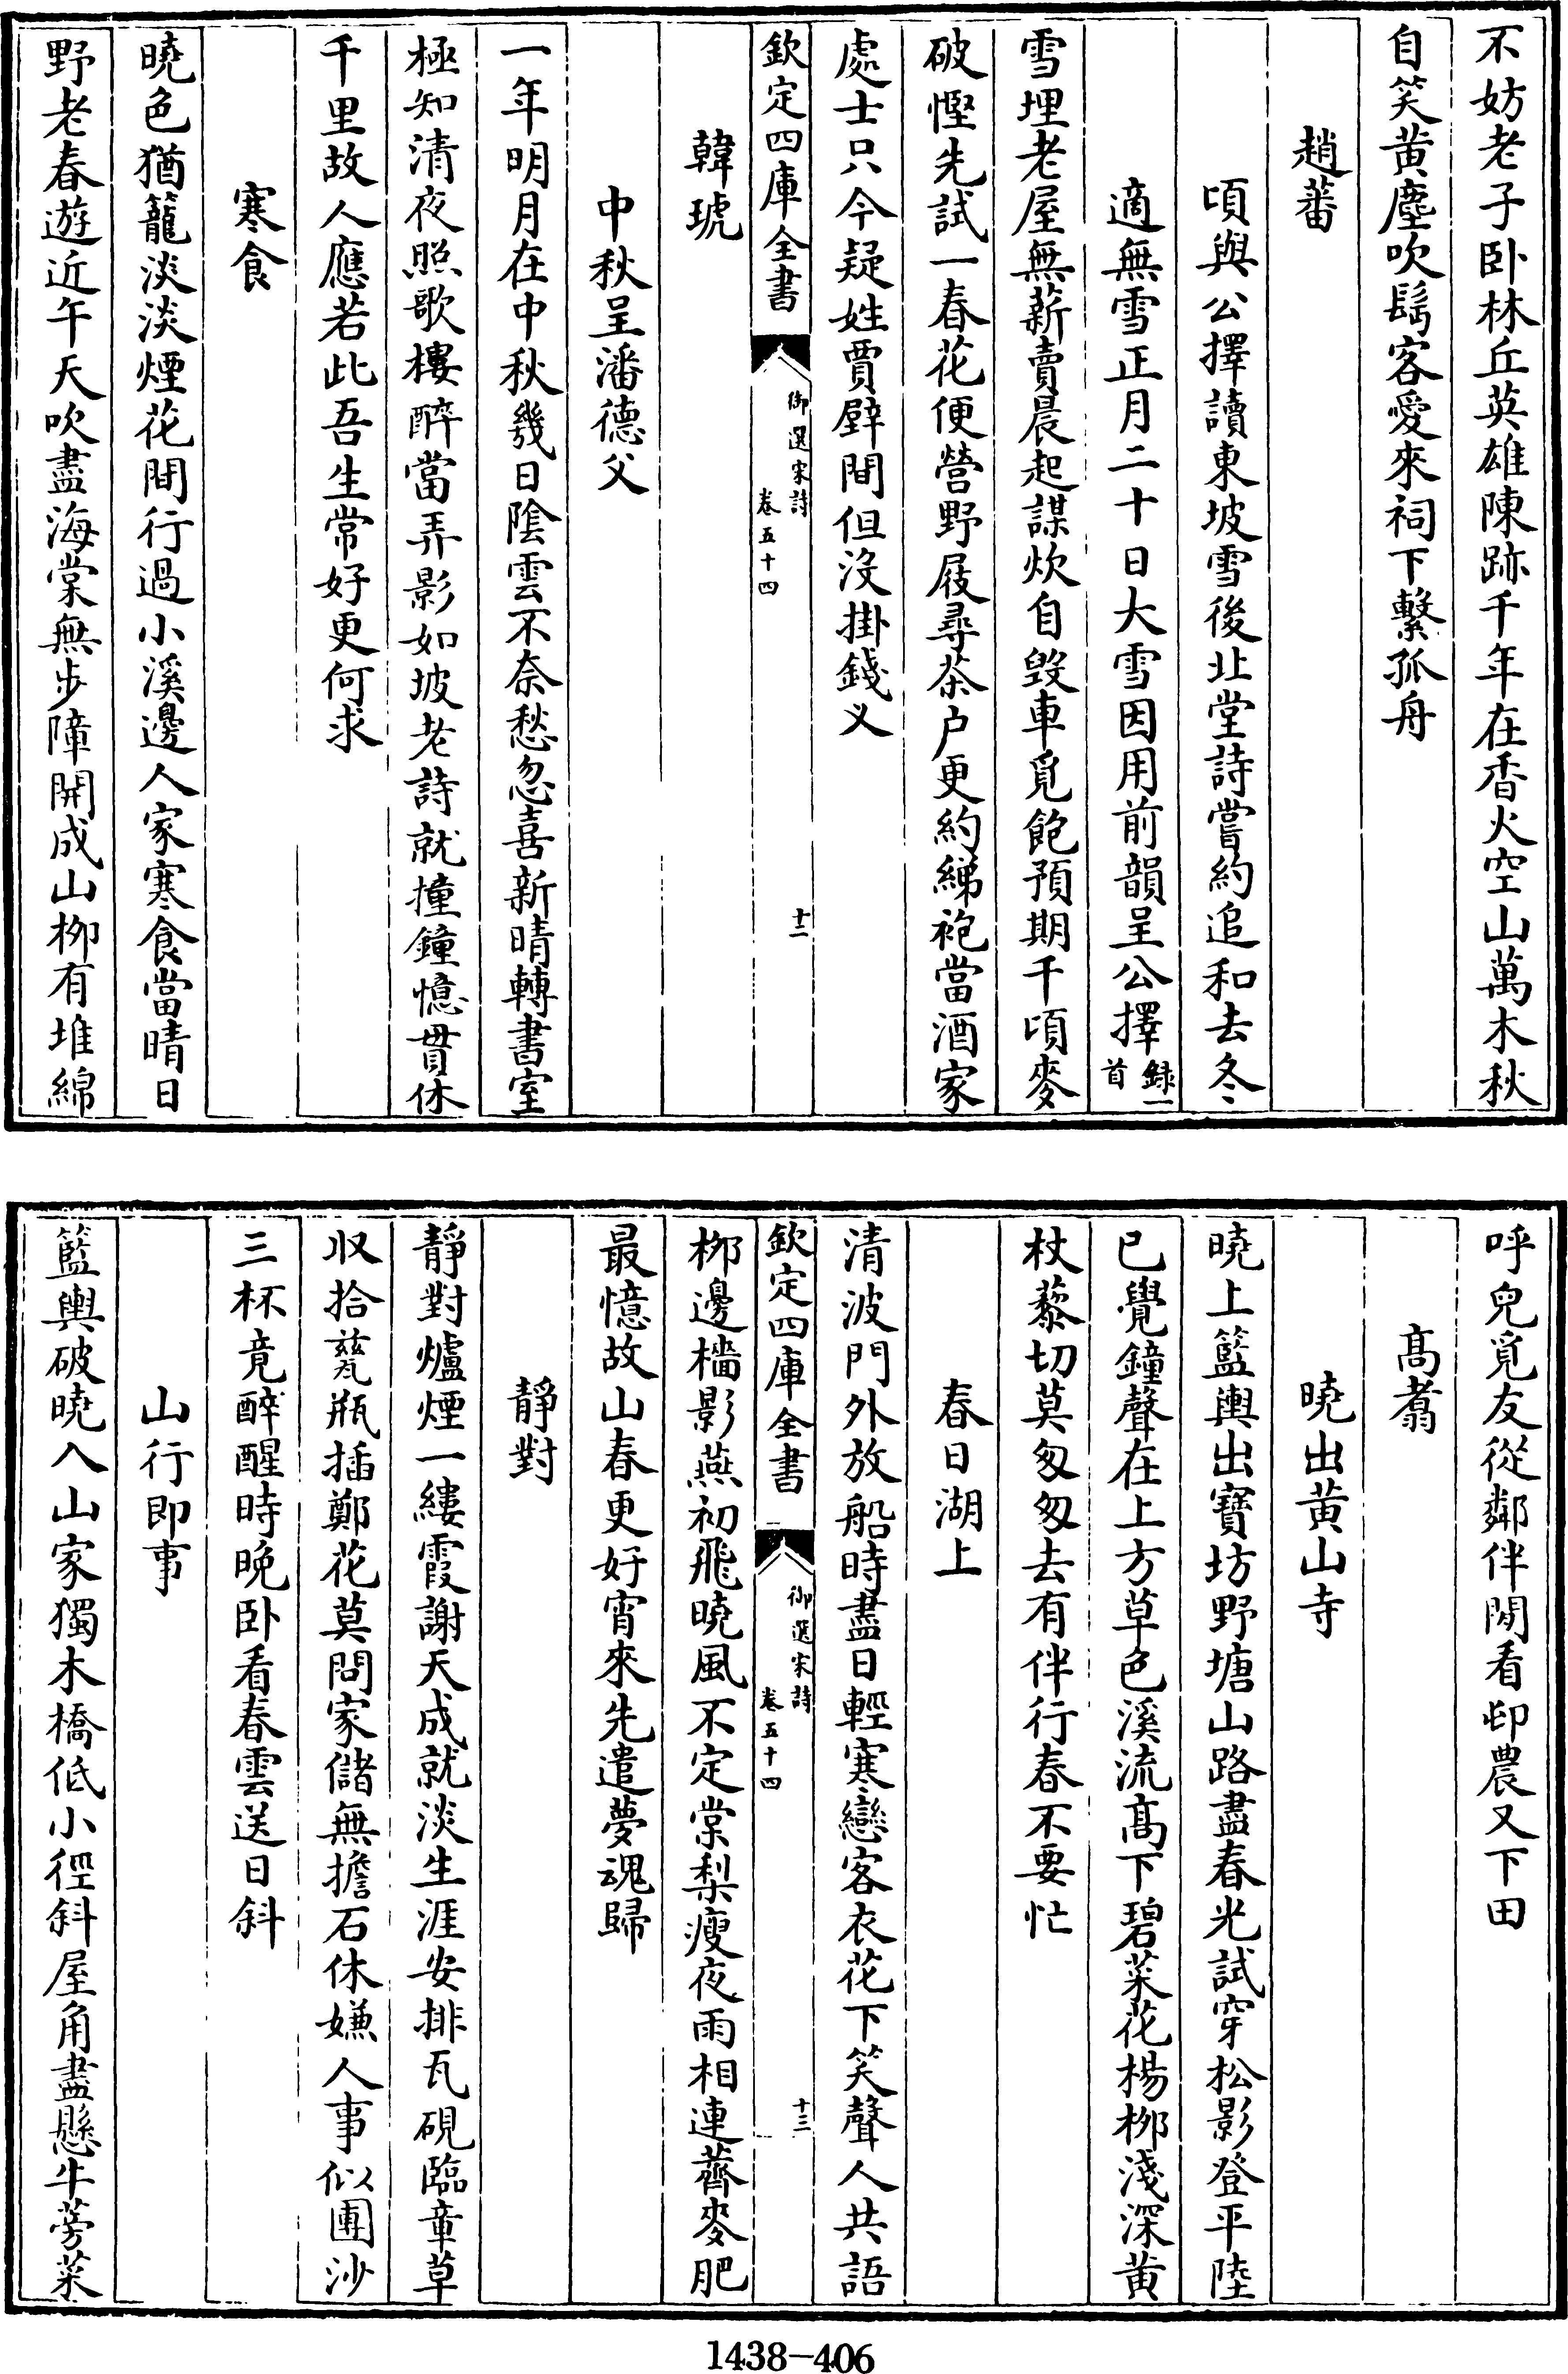 不妨老子卧林丘英雄陳跡千年在香火空山萬木秋
自笑黄塵吹髩客愛來祠下繫孤舟
趙蕃
頃與公擇讀東坡雪後北堂詩嘗約追和去冬
適無雪正月二十日大雪因用前韻呈公擇錄一首
雪埋老屋無薪賣晨起謀炊自毁車覓飽預期千頃麥
破慳先試一春花便營野屐尋茶户更約綈袍當酒家
處士只今疑姓賈壁間但没掛錢义
欽定四庫全書
御選宋詩
卷五十四
十二
韓琥
中秋呈潘德父
一年明月在中秋幾日陰雲不奈愁忽喜新晴轉書室
極知清夜照歌樓醉當弄影如坡老詩就撞鐘憶貫休
千里故人應若此吾生常好更何求
寒食
曉色猶籠淡淡煙花間行過小溪邊人家寒食當晴日
野老春遊近午天吹盡海棠無步障開成山栁有堆綿
呼兒覓友從鄰伴閒看邨農又下田
髙翥
曉出黄山寺
曉上籃輿出寶坊野塘山路盡春光試穿松影登平陸
已覺鐘聲在上方草色溪流髙下碧菜花楊栁淺深黄
杖藜切莫匆匆去有伴行春不要忙
春日湖上
清波門外放船時盡日輕寒戀客衣花下笑聲人共語
欽定四庫全書
御選宋詩
卷五十四
十三
栁邊檣影燕初飛曉風不定棠梨瘦夜雨相連薺麥肥
最憶故山春更好宵來先遣夢魂歸
靜對
靜對爐煙一縷霞謝天成就淡生涯安排瓦硯臨章草
收拾甆瓶插鄭花莫問家儲無擔石休嫌人事似團沙
三杯竟醉醒時晚卧看春雲送日斜
山行即事
籃輿破曉入山家獨木橋低小徑斜屋角盡懸牛蒡菜
1438-406